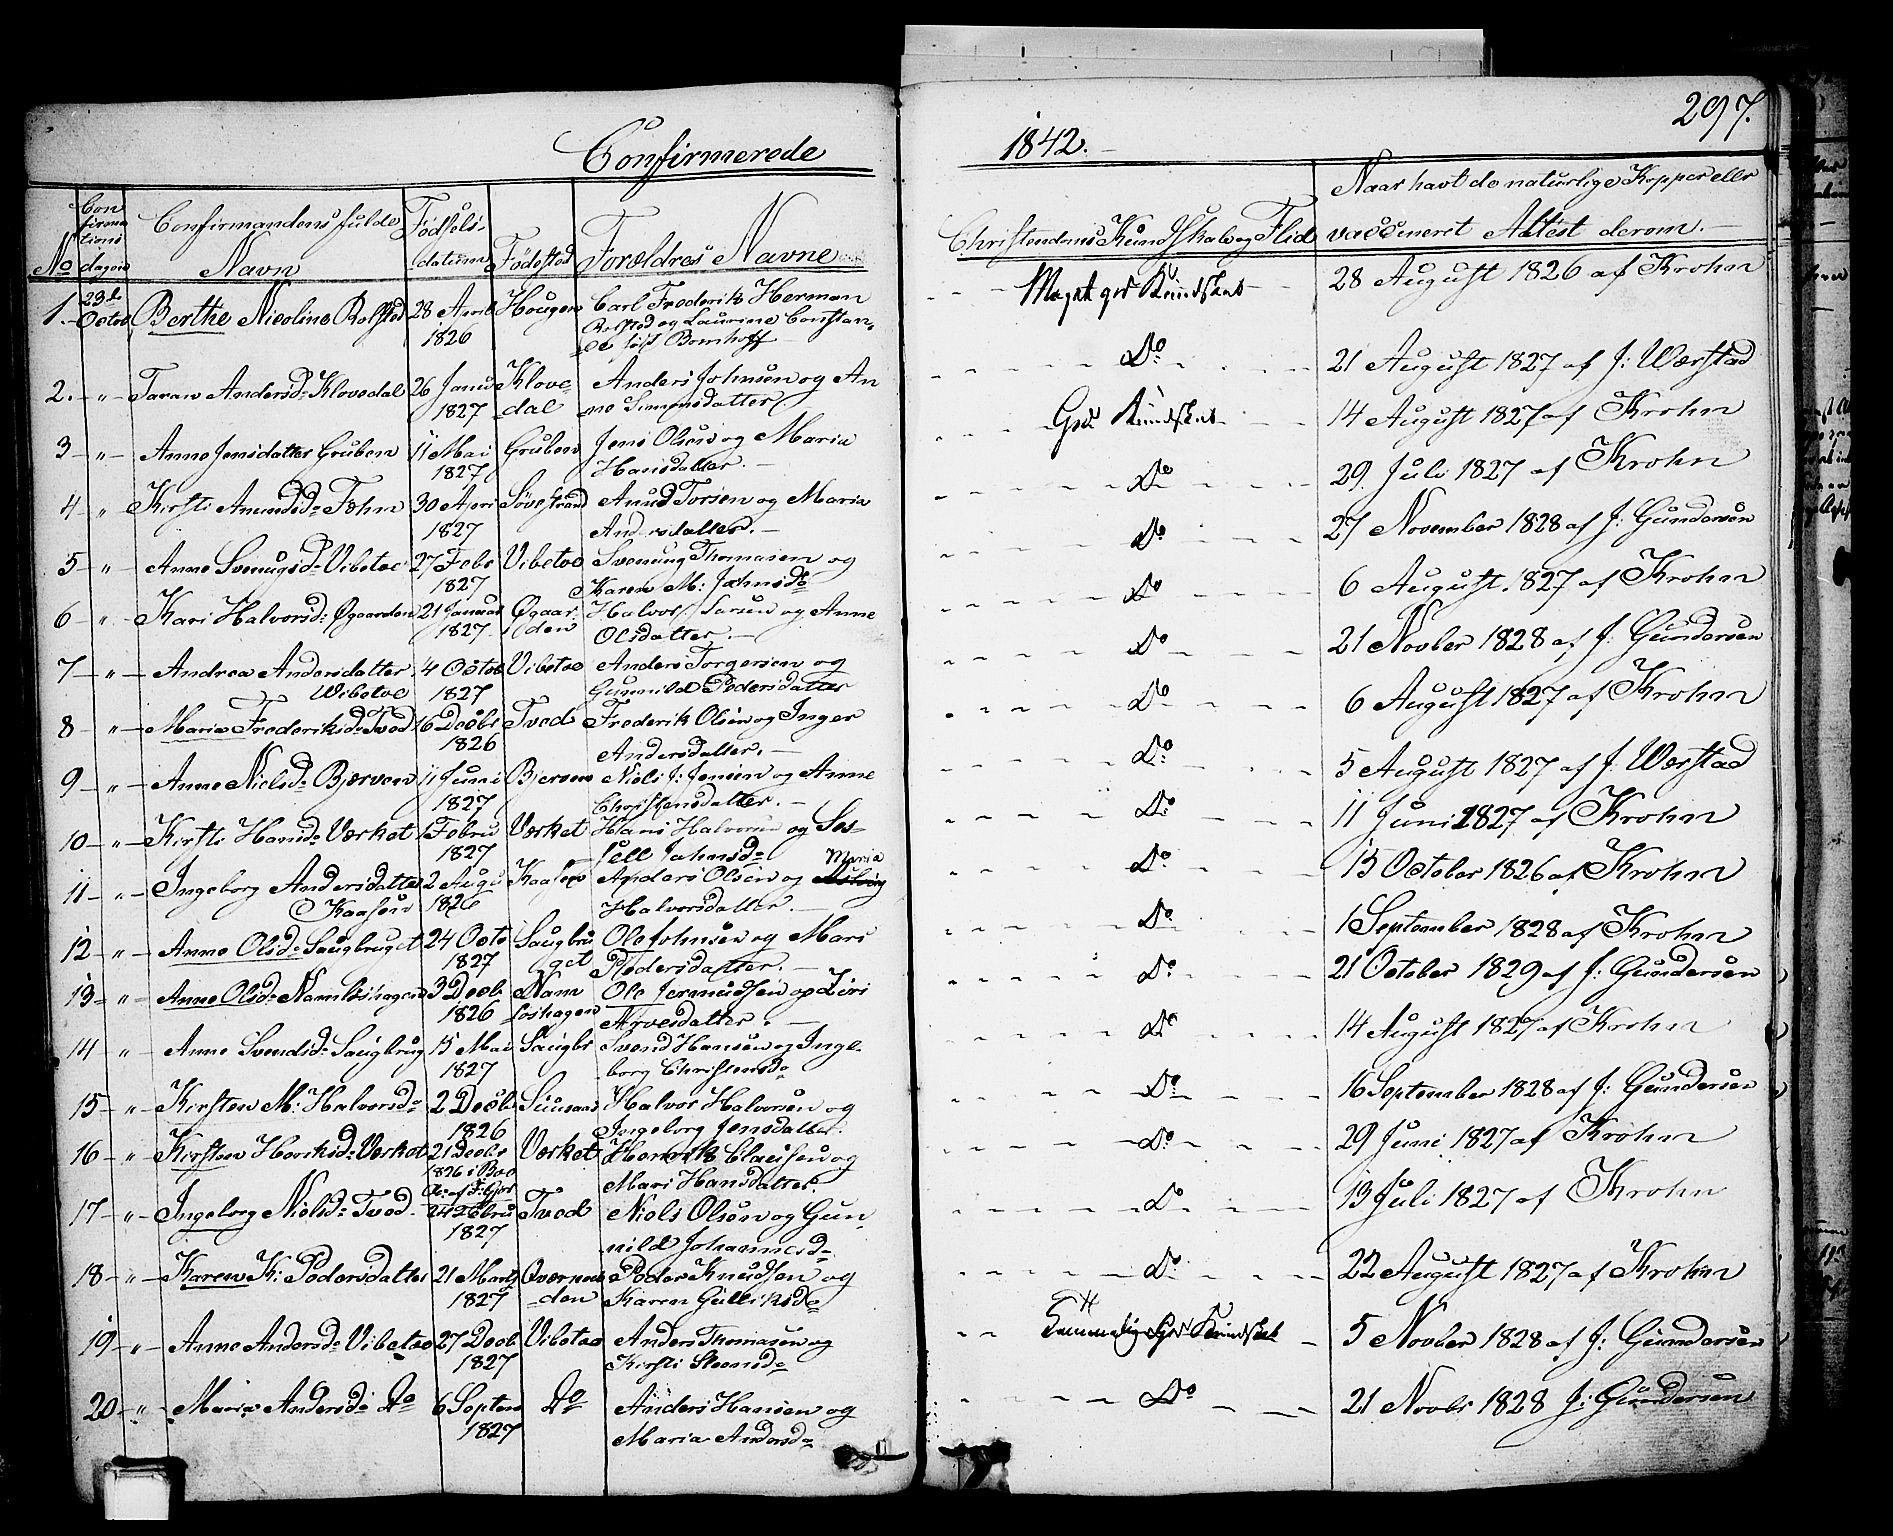 297.
Confirmerede
1842.
No
Confirmationsdagen
Confirmandens fulde Navn
Fødselsdatum
Fødested
Forældres Navne
Christendoms Kundskab og Flid
Naar havt de naturlige Kopper eller vaccineret Attest derom.
1. 23d Octob Berthe Nicoline Rolsted 28 April 1826 Hougen Carl Frederik Herman Rolsted og Laurine Constance født Bomhoff Meget god Kundskab 28 August 1826 af Krohn
2. " Taran Andersd: Klovedal 26 Janu 1827 Klovedal Anders Johnsen og Anne Simensdatter Do 21 August 1827 af J: Wærstad
3 " Anne Jensdatter Gruben 11 Mai 1827 Gruben Jens Olsen og Maria Hansdatter. God Kundskab 14 August 1827 af Krohn
4 " Kirsti Amundsd: Fæhn 30 Apri 1827 Søvestrand Amud Torsen og Maria Andersdatter. Do 29 Juli 1827 af Krohn
5 " Anne Svenugsd: Vibetoe 27 Febr 1827 Vibetoe Svenung Thomasen og Karen M: Jahnsdr Do 27 November 1828 af J: Gundersen
6 " Kari Halvorsd: Øgaarden 21 Januar 1827 Øgaarden Halvor Saren og Anne Olsdatter. Do 6 August 1827 af Krohn
7 " Andrea Andersdatter Wibetoe 4 Octob 1827 Vibetoe Anders Torgersen og Gunnild Pedersdatter Do 21 Novber 1828 af J: Gundersen
8 " Maria Frederiksd: Tvod 16 Decbr 1826 Tved Frederik Olsen og Inger Andersdatter. Do 6 August 1827 af Krohn
9 " Anne Nielsd: Bjerven 11 Juni 1827 Bjerven Niels J: Jensen og Anne Christensdatter. Do 5 August 1827 af J. Wærstad
10 " Kirsti Hansd: Værket 1 Febru 1827 Værket Hans Halvorsen og Sessell Jahnsd: Do 11 Juni 1827 af Krohn
11 " Ingeborg Andersdatter Kaasen 2 Augu 1826 Kaasen Anders Olsen og Maria Halvorsdatter. Do 15 October 1826 af Krohn
12 " Anne Olsd: Saugbruget 24 Octo 1827 Saugbruget Ole Johnsen og Mari Pedersdatter. Do 1 September 1828 af Krohn
13 " Anne Olsd: Namløshagen 3 Decbr 1826 Namløshagen Ole Jermudsen og Siri Arvesdatter. Do 21 October 1829 af J: Gundersen
14 " Anne Svendsd: Saugbrug 15 Mai 1827 Saugbr Svend Hansen og Ingeborg Christensd: Do 14 August 1827 af Krohn
15 " Kirsten M: Halvorsd: 2 Decbr 1826 Halvor Halvorsen og Ingeborg Jensdatter. Do 16 September 1828 af J: Gundersen
16 " Kirsten Henriksd: Værket 21 Decbr 1826 Værket Henrik Clausen og Mari Hansdatter Do 29 Juni 1827 af Krohn
17 " Ingeborg Nielsd: Tvod 24 Febru 1827 Tved Niels Olsen og Gunnild Johannesd: Do 13 Juli 1827 af Krohn
18 " Karen K: Pedersdatter 21 Marts 1827 Qværneoden Peder Knudsen og Karen Gulliksdr Do 22 August 1827 af Krohn
19 " Anne Andersd: Vibetoe 27 Decb 1827 Vibetoe Anders Thomasen og Kirsti Steensd: Temmelig God Kundskab 5 Novber 1828 af J: Gundersen
20 " Maria Andersd: Do 6 Septem 1827 Do Anders Hansen og Maria Andersd: Do 21 Novbr 1828 J: Gundersen